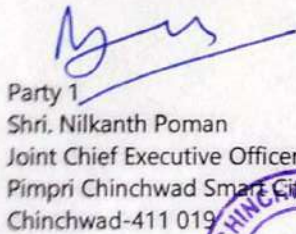 Party 1
Shri. Nilkanth Poman
Joint Chief Executive Officer
Pimpri Chinchwad Smart Cit
Chinchwad-411 019
HINCH